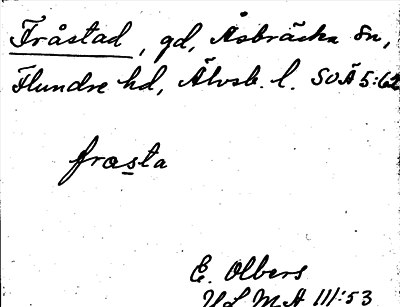 Fråstad, gd, Åsbräcka sn,
Flundre hd, Älvsb. l. SOÄ 5:62
frasta
E. Olbers
VFL M A III:53